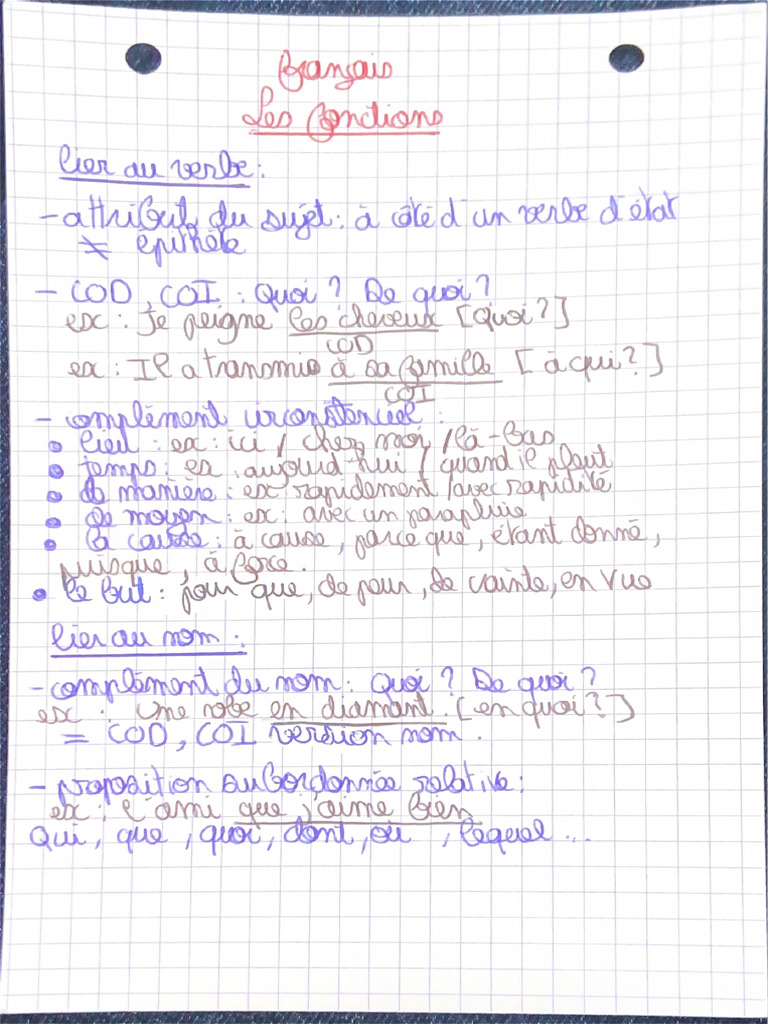 Français
Les Fonctions
lier au verbe :
- attribut du sujet : à côté d'un verbe d'état
≠ épithète
- COD, COI : Quoi ? De quoi ?
ex : Je peigne les cheveux [quoi ?]
COD
ex : Il a transmis à sa famille [à qui ?]
COI
- complément circonstanciel :
• lieu : ex : ici / chez moi / là-bas
• temps : ex : aujourd'hui / quand il pleut
• de manière : ex rapidement / avec rapidité
• de moyen : ex : avec un parapluie
• la cause : à cause, parce que, étant donné,
puisque, à force.
• le but : pour que, de peur, de crainte, en vue
lier au nom :
- complément du nom : Quoi ? De quoi ?
ex : Une robe en diamant. [en quoi ?]
= COD, COI version nom.
- proposition subordonnée relative :
ex : l'ami que j'aime bien
Qui, que, quoi, dont, où, lequel ...